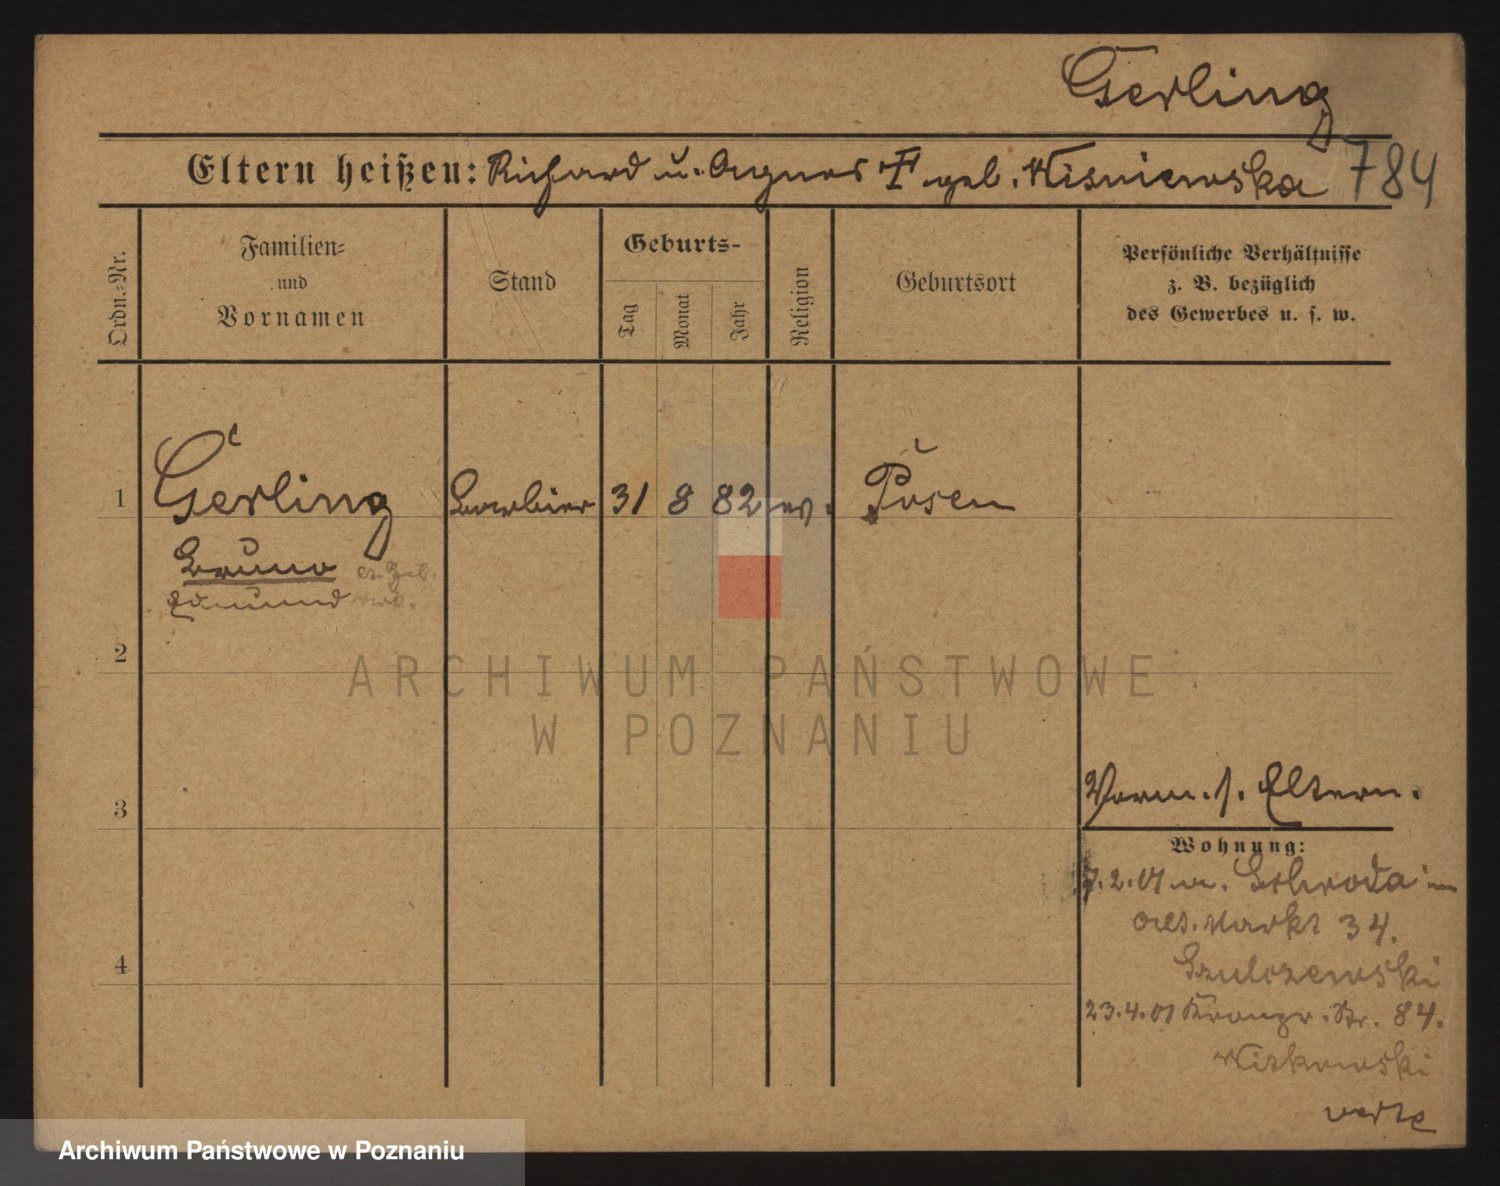 Gerling
Eltern heißen: Richard u. Agnes F geb. Wisniewska 784
Ordn.-Nr.
Familien-
und
Vornamen
Stand
Geburts-
Tag
Monat
Jahr
Religion
Geburtsort
Persönliche Verhältnisse
z. B. bezüglich
des Gewerbes u. s. w.
1 Gerling Barbier 31 8 82 ev. Posen
Bruno lt. Geb.
Edmund
2
ARCHIWUM PAŃSTWOWE
W POZNANIU
3
Vorm. s. Eltern.
Wohnung:
7.2.01 v. Schroda
Alt. Markt 34.
Szulczewski
4
23.4.01 Kronpr. Str. 84.
Witkowski
verte
Archiwum Państwowe w Poznaniu